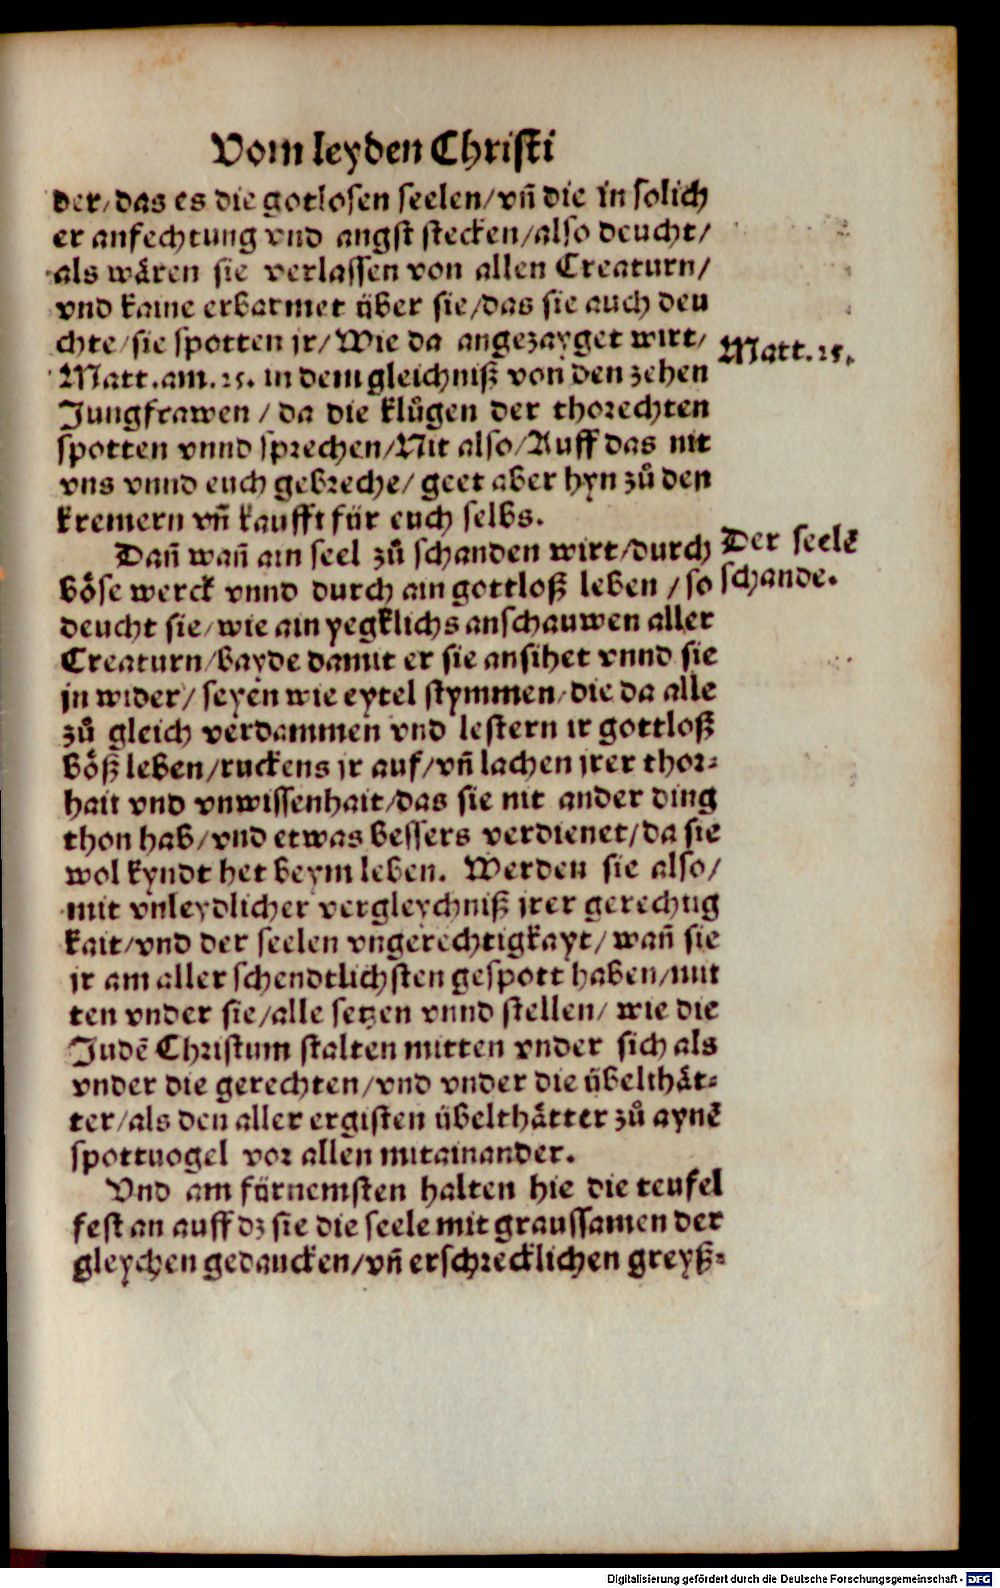 Vom leyden Christi
der/das es die gotlosen seelen/vn̄ die in solich
er anfechtung vnd angst stecken/also deucht/
als wären sie verlassen von allen Creaturn/
vnd kaine erbarmet über sie/das sie auch deu
chte/sie spotten jr/Wie da angezayget wirt/
Matt. 25.
Matt.am.25. in dem gleichniß von den zehen
Jungfrawen/da die klůgen der thorechten
spotten vnnd sprechen/Nit also/Auff das nit
vns vnnd euch gebreche/geet aber hyn zů den
kremern vn̄ kaufft für euch selbs.
Dan̄ wan̄ ain seel zů schanden wirt/durch
Der seelē
böse werck vnnd durch ain gottloß leben/so
schande.
deucht sie/wie ain yegklichs anschauwen aller
Creaturn/bayde damit er sie ansihet vnnd sie
jn wider/seyen wie eytel stymmen/die da alle
zů gleich verdammen vnd lestern ir gottloß
böß leben/ruckens jr auf/vn̄ lachen jrer thor⸗
hait vnd vnwissenhait/das sie nit ander ding
thon hab/vnd etwas bessers verdienet/da sie
wol kyndt het beym leben. Werden sie also/
mit vnleydlicher vergleychniß jrer gerechtig
kait/vnd der seelen vngerechtigkayt/wan̄ sie
jr am aller schendtlichsten gespott haben/mit
ten vnder sie/alle setzen vnnd stellen/wie die
Judē Christum stalten mitten vnder sich als
vnder die gerechten/vnd vnder die übelthät⸗
ter/als den aller ergisten übelthätter zů aynē
spottuogel vor allen mitainander.
Vnd am fürnemsten halten hie die teufel
fest an auff dz sie die seele mit graussamen der
gleychen gedancken/vn̄ erschrecklichen greyß⸗
Digitalisierung gefördert durch die Deutsche Forschungsgemeinschaft - DFG